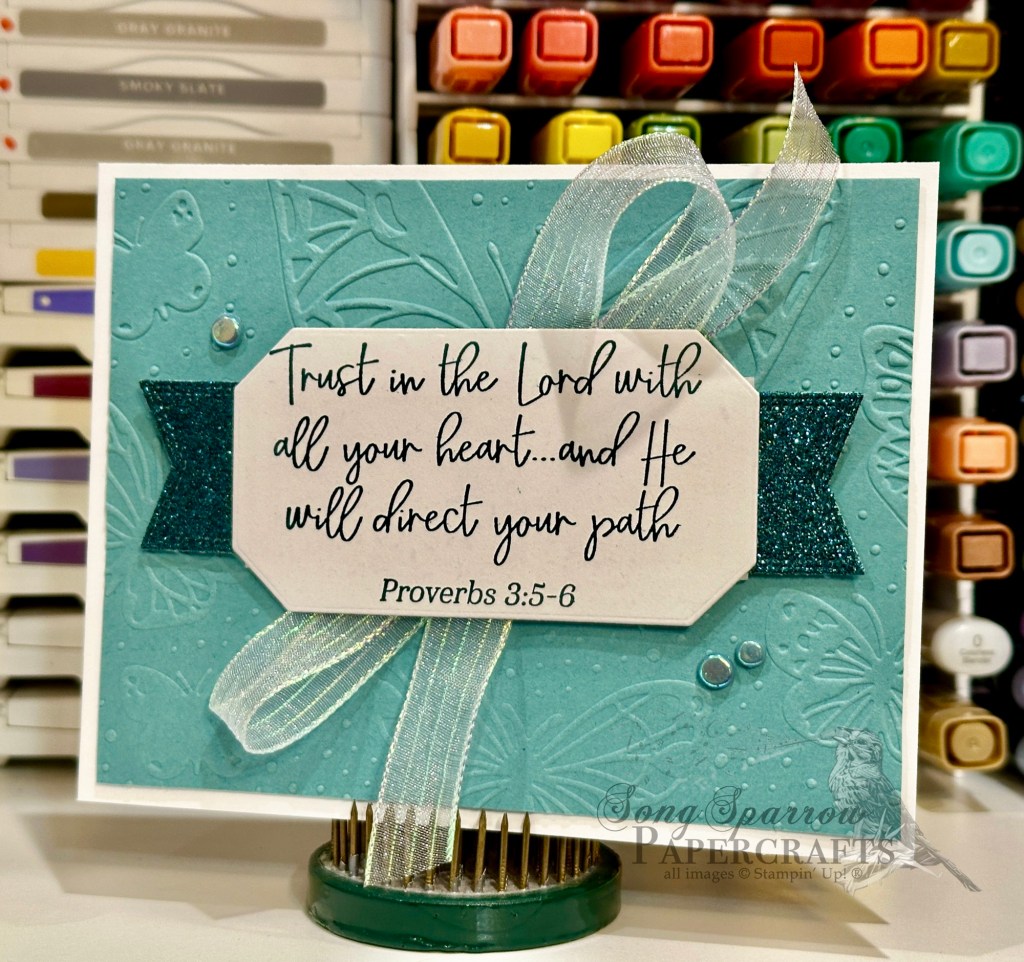 GRAY GRANITE
SMOKY SLATE
GRAY GRANITE
Trust in the Lord with
all your heart...and He
will direct your path
Proverbs 3:5-6
Song Sparrow
PAPERCRAFTS
all images © Stampin' Up! ®